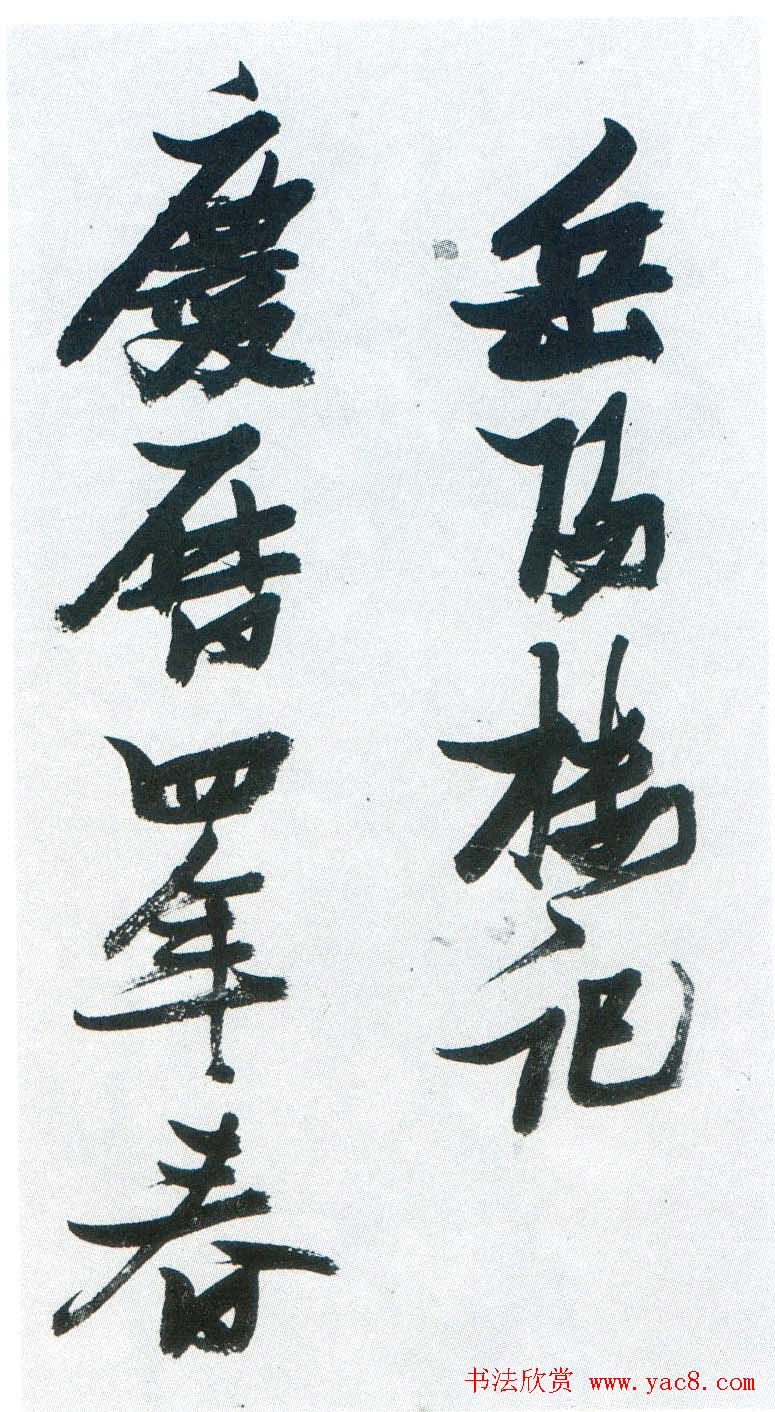 岳阳楼记
慶曆四年春
书法欣赏 www.yac8.com